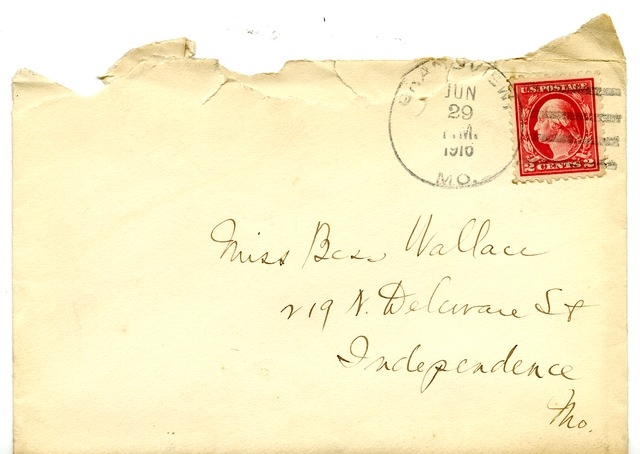 GRANDVIEW
JUN
29
P.M.
1916
MO.
U.S. POSTAGE
2 CENTS 2
Miss Bess Wallace
219 N. Delaware St
Independence
Mo.